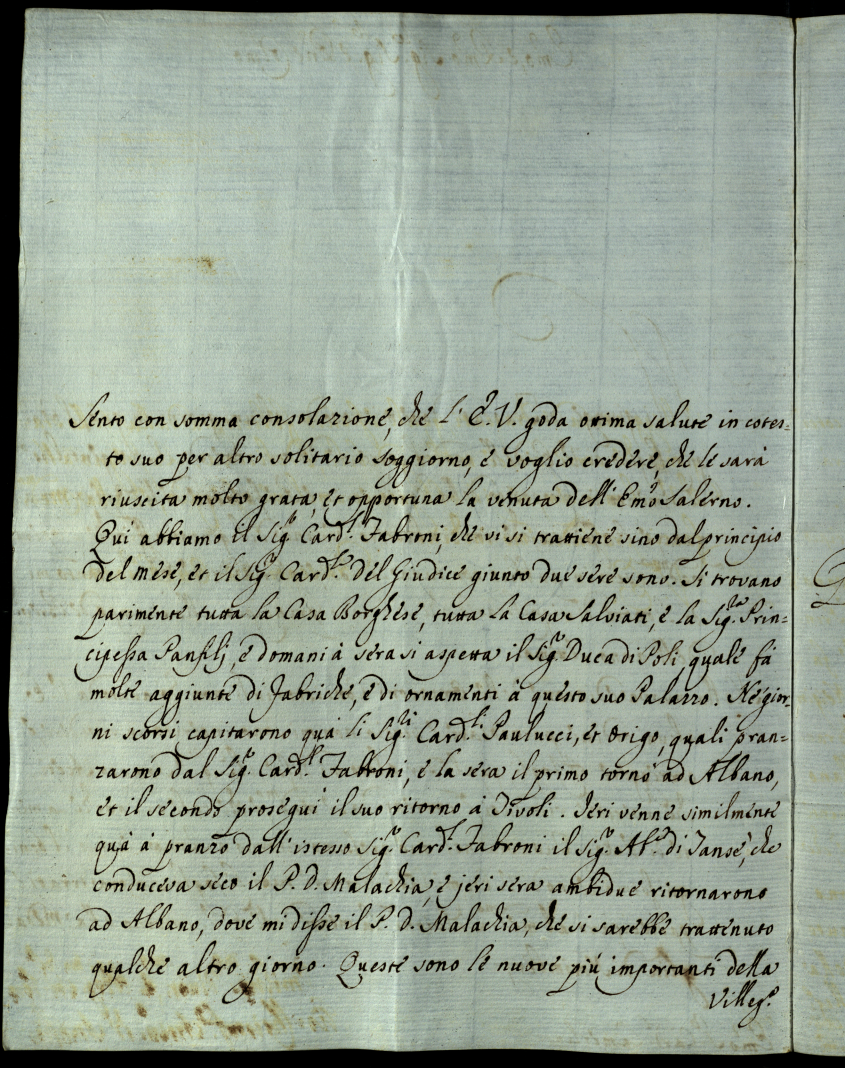 Sento con somma consolazione, che L' E. V. goda ottima salute in cotes=
to suo per altro solitario soggiorno, e voglio credere, che le sarà
riuscita molto grata, et opportuna la venuta dell' Emo Salerno.
Qui abbiamo il Sigr Cardl Fabroni, che vi si trattiene sino dal principio
del mese, et il Sigr Cardle del Giudice giunto due sere sono. Si trovano
parimente tutta la Casa Borghese, tutta la Casa Salviati, e la Sigra Prin=
cipessa Panfilj, e domani à sera si aspetta il Sigr Duca di Poli, quale fà
molte aggiunte di fabriche, e di ornamenti à questo suo Palazzo. Ne' gior=
ni scorsi capitarono quà li Sigri Cardli Paulucci, et Origo, quali pran=
zarono dal Sigr Cardl Fabroni, e la sera il primo tornò ad Albano,
et il secondo proseguì il suo ritorno à Tivoli. Jeri venne similmente
quà à pranzo dall' istesso Sigr Cardl Fabroni il Sigr Abe di Tansè, che
conduceva seco il P. D. Malachia, e jeri sera ambidue ritornarono
ad Albano, dove mi disse il P. D. Malachia, che si sarebbe trattenuto
qualche altro giorno. Queste sono le nuove più importanti della
Villega